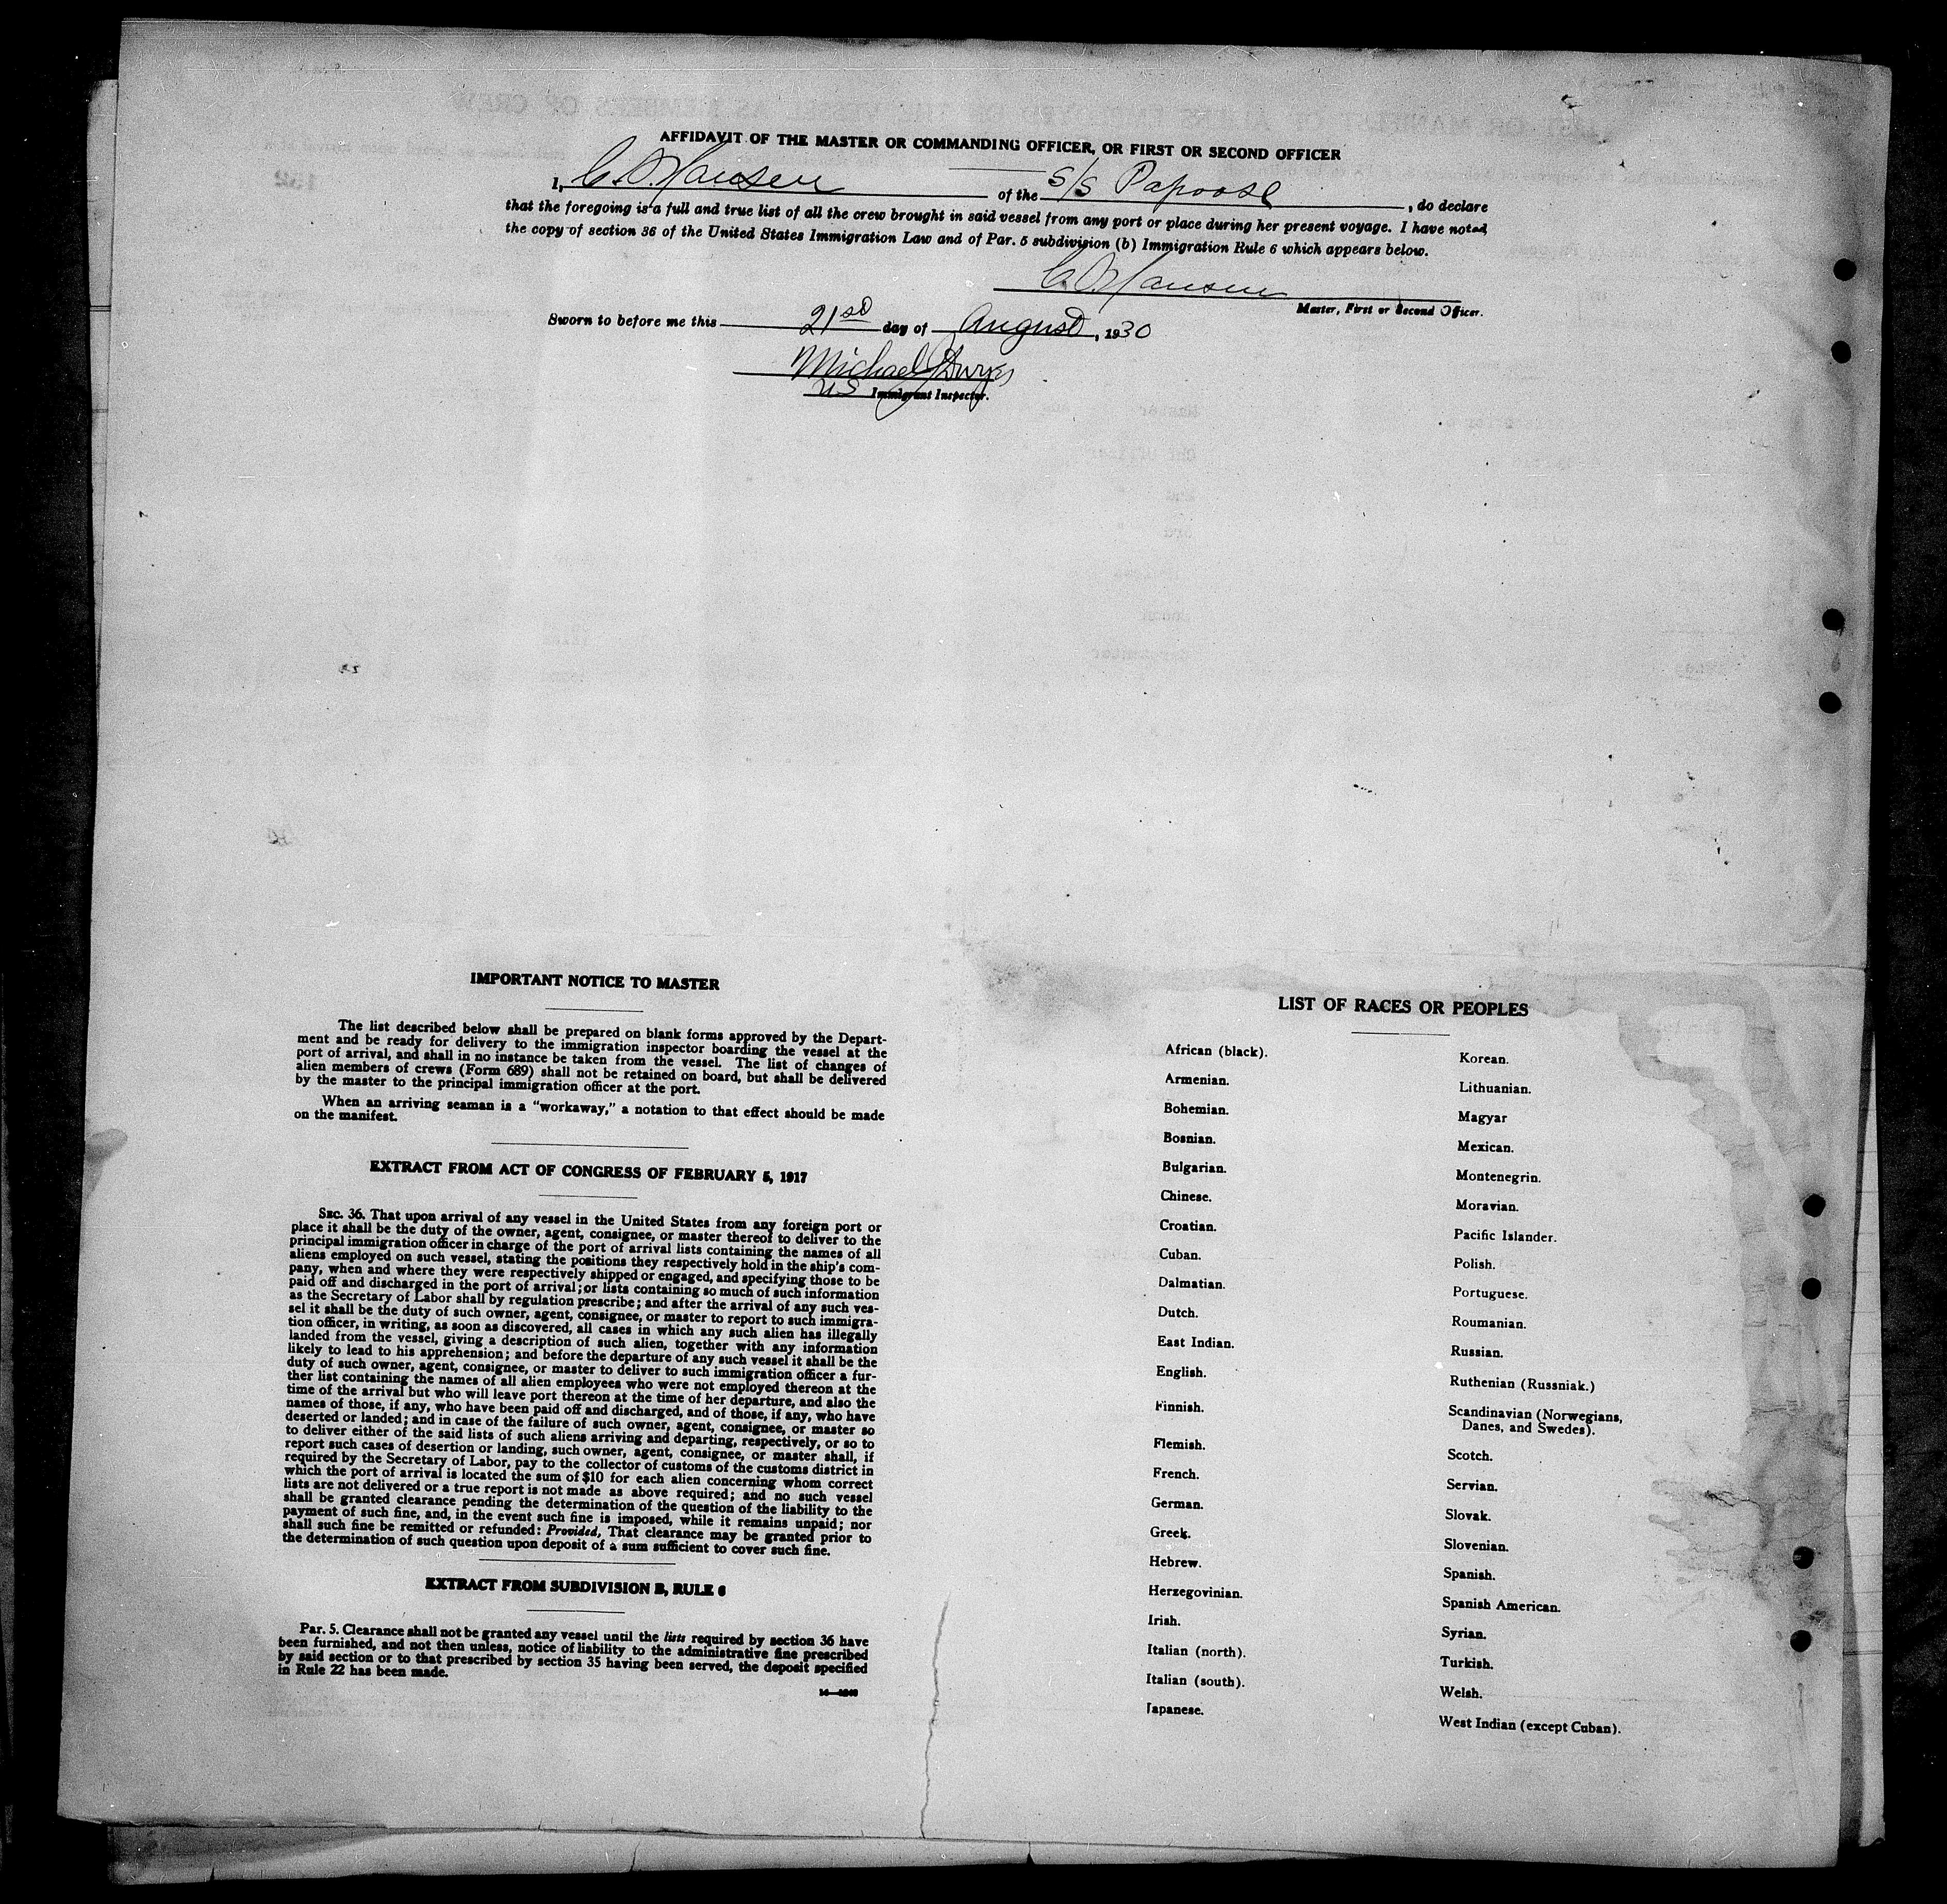 AFFIDAVIT OF THE MASTER OR COMMANDING OFFICER, OR FIRST OR SECOND OFFICER
I, C. O. Hansen of the S/S Papoose, do declare
that the foregoing is a full and true list of all the crew brought in said vessel from any port or place during her present voyage. I have noted
the copy of section 36 of the United States Immigration Law and of Par. 5 subdivision (b) Immigration Rule 6 which appears below.
C. O. Hansen
Master, First or Second Officer.
Sworn to before me this 21st day of August, 1930
Michael J
US Immigrant Inspector.
IMPORTANT NOTICE TO MASTER
The list described below shall be prepared on blank forms approved by the Depart-
ment and be ready for delivery to the immigration inspector boarding the vessel at the
port of arrival, and shall in no instance be taken from the vessel. The list of changes of
alien members of crews (Form 689) shall not be retained on board, but shall be delivered
by the master to the principal immigration officer at the port.
When an arriving seaman is a "workaway," a notation to that effect should be made
on the manifest.
EXTRACT FROM ACT OF CONGRESS OF FEBRUARY 5, 1917
SEC. 36. That upon arrival of any vessel in the United States from any foreign port or
place it shall be the duty of the owner, agent, consignee, or master thereof to deliver to the
principal immigration officer in charge of the port of arrival lists containing the names of all
aliens employed on such vessel, stating the positions they respectively hold in the ship's com-
pany, when and where they were respectively shipped or engaged, and specifying those to be
paid off and discharged in the port of arrival; or lists containing so much of such information
as the Secretary of Labor shall by regulation prescribe; and after the arrival of any such ves-
sel it shall be the duty of such owner, agent, consignee, or master to report to such immigra-
tion officer, in writing, as soon as discovered, all cases in which any such alien has illegally
landed from the vessel, giving a description of such alien, together with any information
likely to lead to his apprehension; and before the departure of any such vessel it shall be the
duty of such owner, agent, consignee, or master to deliver to such immigration officer a fur-
ther list containing the names of all alien employees who were not employed thereon at the
time of the arrival but who will leave port thereon at the time of her departure, and also the
names of those, if any, who have been paid off and discharged, and of those, if any, who have
deserted or landed; and in case of the failure of such owner, agent, consignee, or master so
to deliver either of the said lists of such aliens arriving and departing, respectively, or so to
report such cases of desertion or landing, such owner, agent, consignee, or master shall, if
required by the Secretary of Labor, pay to the collector of customs of the customs district in
which the port of arrival is located the sum of $10 for each alien concerning whom correct
lists are not delivered or a true report is not made as above required; and no such vessel
shall be granted clearance pending the determination of the question of the liability to the
payment of such fine, and, in the event such fine is imposed, while it remains unpaid; nor
shall such fine be remitted or refunded: Provided, That clearance may be granted prior to
the determination of such question upon deposit of a sum sufficient to cover such fine.
EXTRACT FROM SUBDIVISION B, RULE 6
Par. 5. Clearance shall not be granted any vessel until the lists required by section 36 have
been furnished, and not then unless, notice of liability to the administrative fine prescribed
by said section or to that prescribed by section 35 having been served, the deposit specified
in Rule 22 has been made.
LIST OF RACES OR PEOPLES
African (black).
Armenian.
Bohemian.
Bosnian.
Bulgarian.
Chinese.
Croatian.
Cuban.
Dalmatian.
Dutch.
East Indian.
English.
Finnish.
Flemish.
French.
German.
Greek.
Hebrew.
Herzegovinian.
Irish.
Italian (north).
Italian (south).
Japanese.
Korean.
Lithuanian.
Magyar
Mexican.
Montenegrin.
Moravian.
Pacific Islander.
Polish.
Portuguese.
Roumanian.
Russian.
Ruthenian (Russniak.)
Scandinavian (Norwegians,
Danes, and Swedes).
Scotch.
Servian.
Slovak.
Slovenian.
Spanish.
Spanish American.
Syrian.
Turkish.
Welsh.
West Indian (except Cuban).